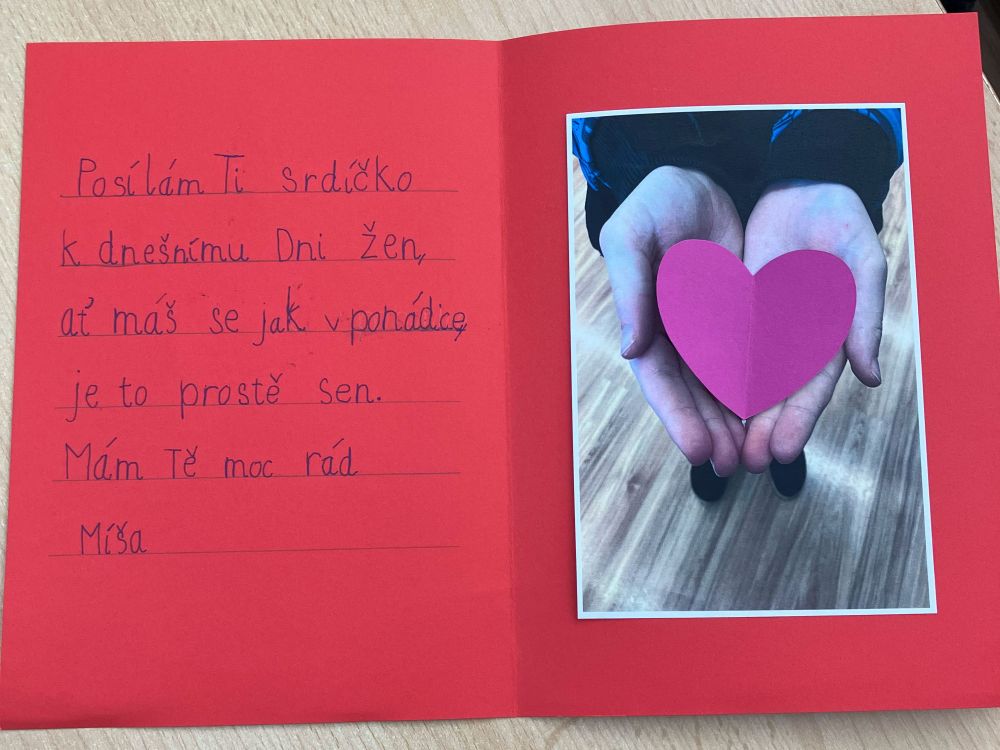 Posílám Ti srdíčko
k dnešnímu Dni žen,
ať máš se jak v ponádice,
je to prostě sen.
Mám Tě moc rád
Míša